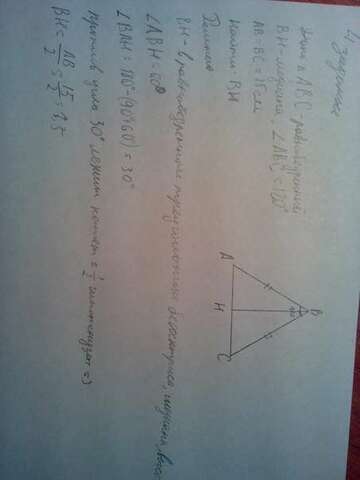 4 задание
Дано Δ ABC - равнобедренный
BH - медиана, ∠ABC = 120°
AB = BC = 15 см
Найти - BH
Решение
BH - в равнобедренном треугольнике биссектриса, медиана, выс
∠ABH = 60°
∠BAH = 180° - (90° + 60°) = 30°
против угла 30° лежит катет = 1/2 гипотенузы =>
BH = AB/2 = 15/2 = 7,5
A
H
B
C